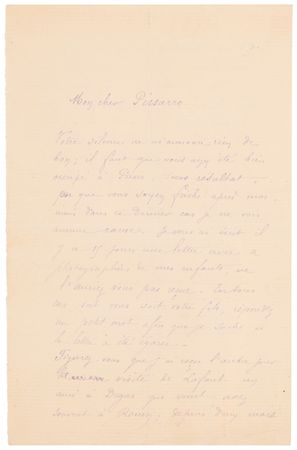 Mon cher Pissarro
Votre silence ne m'annonce rien de
bon; il faut que vous ayez été bien
occupé à Paris, sans résultat,
ou que vous soyez faché après moi,
mais dans ce dernier cas je ne vous
cause. Je vous ai écrit il
y a 15 jours une lettre avec
photographies de mes enfants, ne
l'auriez vous pas reçue. En tous
cas, soit vous soit votre fils,
un petit mot afin que je sache si
la lettre a été égarée.
Figurez vous que j'ai reçu l'autre jour
visite de Lafont un
ami à Degas que vient
souvent à Rouen, depuis deux mois